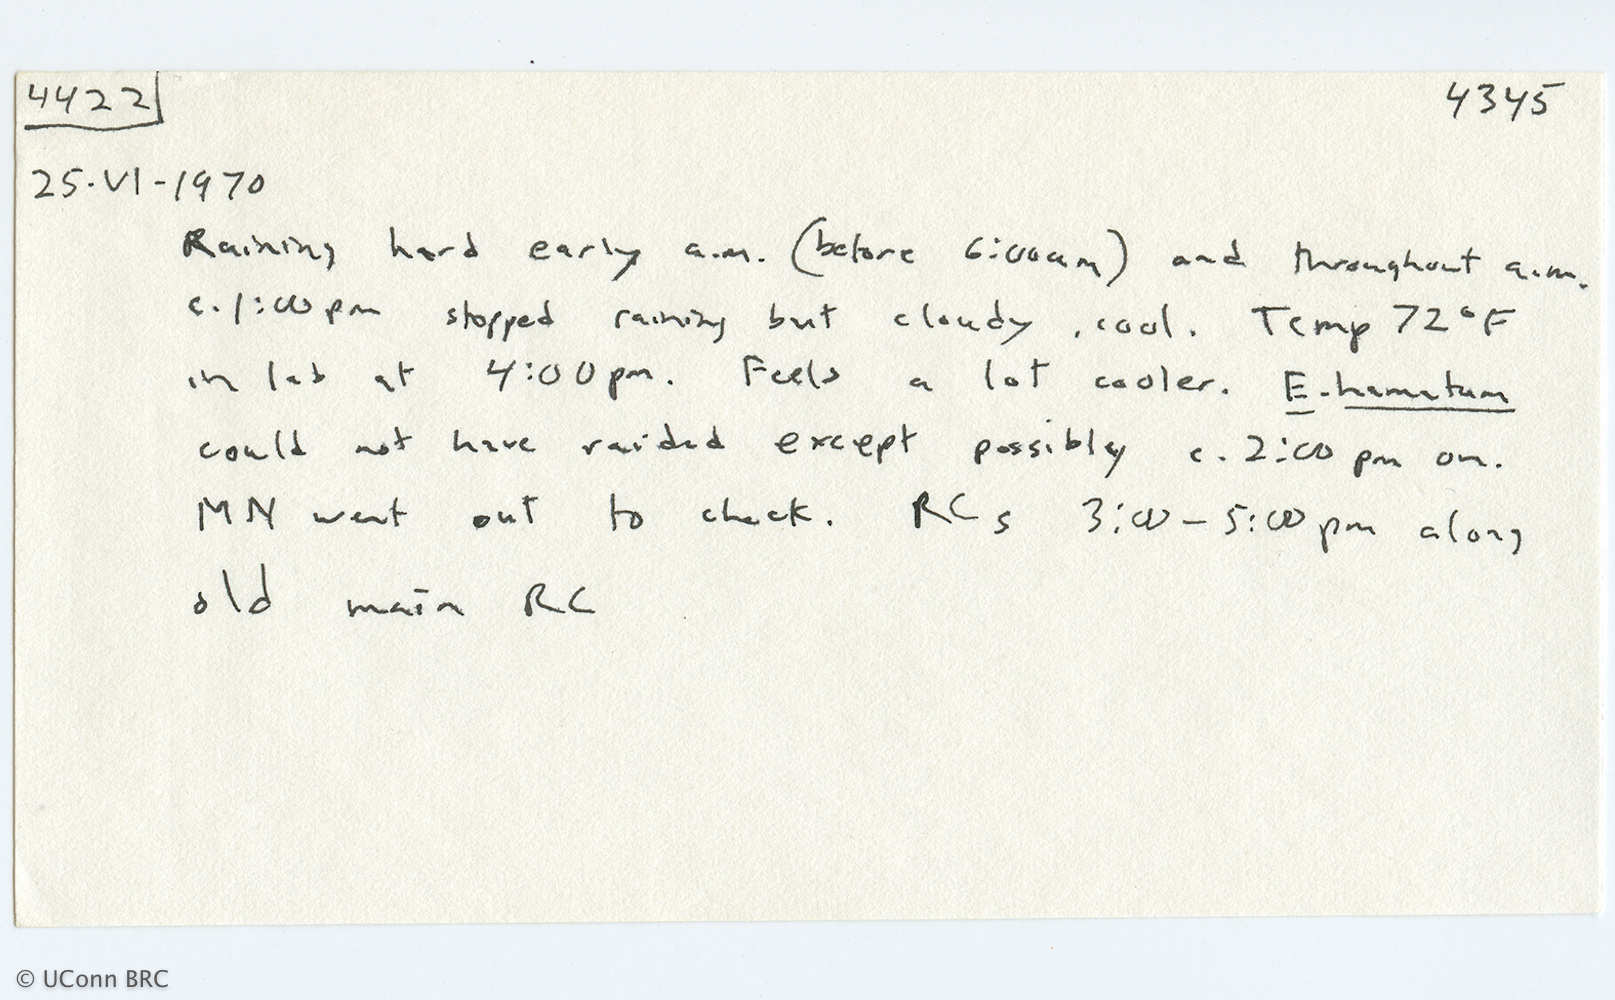 4422 4345
25-VI-1970
Raining hard early a.m. (before 6:00am) and throughout a.m.
c. 1:00 pm stopped raining but cloudy, cool. Temp 72°F
in lab at 4:00 pm. Feels a lot cooler. E. hamatum
could not have raided except possibly c. 2:00 pm on.
MN went out to check. RCs 3:00-5:00 pm along
old main RC
© UConn BRC